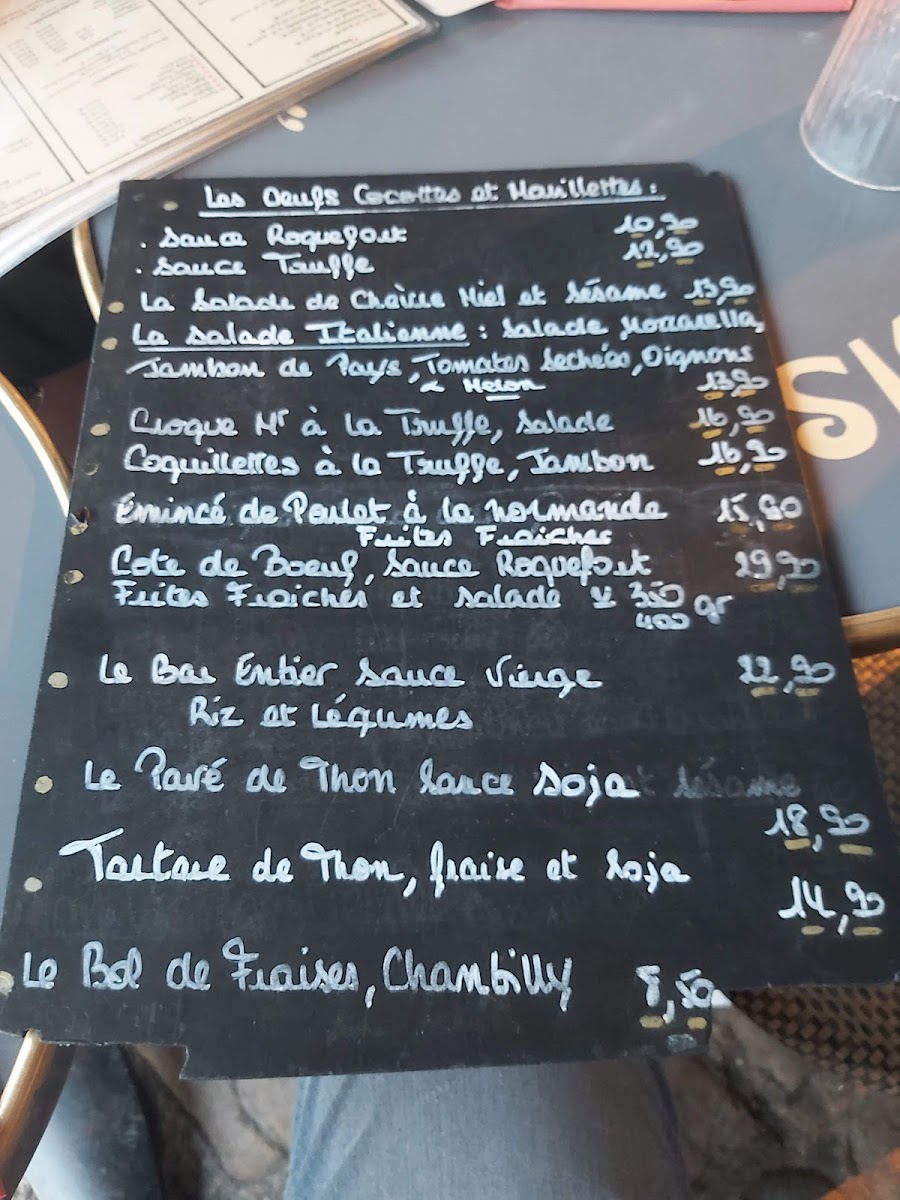 Les Oeufs Cocottes et Mouillettes :
. Sauce Roquefort 10,90
. Sauce Truffe 12,90
La Salade de Chèvre Miel et Sésame 13,90
La Salade Italienne : Salade, Mozzarella,
Jambon de Pays, Tomates Sechées, Oignons
& Melon 13,90
Croque Mr à la Truffe, Salade 16,90
Coquillettes à la Truffe, Jambon 16,90
Émincé de Poulet à la normande 15,90
Frites Fraiches
Cote de Boeuf, Sauce Roquefort 29,90
Frites Fraiches et Salade 350
400 gr
Le Bar Entier Sauce Vierge 22,90
Riz et Légumes
Le Pavé de Thon Sauce Soja et sésame
18,90
Tartare de Thon, fraise et soja
14,90
Le Bol de Fraises, Chantilly 8,50